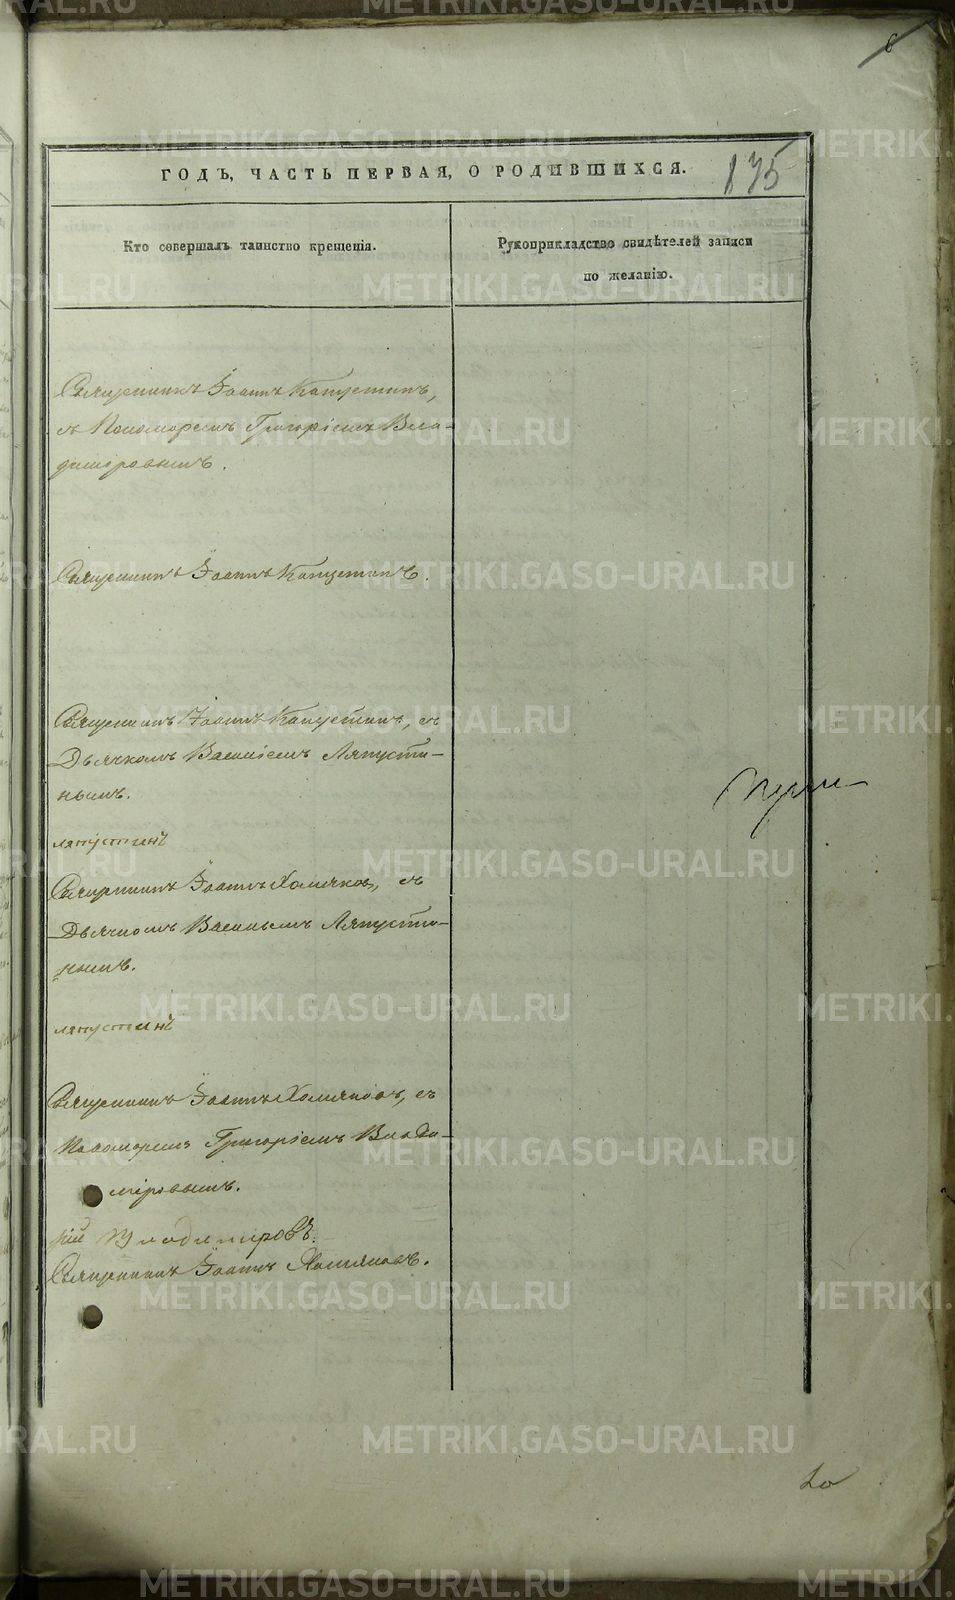 6
ГОДЪ, ЧАСТЬ ПЕРВАЯ, О РОДИВШИХСЯ.
175
Кто совершалъ таинство крещенія.
Рукоприкладство свидѣтелей записи
по желанію.
Священникъ Іоаннъ Капустинъ,
съ Пономаремъ Григоріемъ Вла-
диміровымъ.
Священникъ Іоаннъ Капустинъ.
Священникъ Іоаннъ Капустинъ, съ
Дьячкомъ Василіемъ Ляпусти-
нымъ.
ляпустинъ
Священникъ Іоаннъ Хомяковъ, съ
Дьячкомъ Васильемъ Ляпусти-
нымъ.
ляпустинъ
Священникъ Іоаннъ Хомяковъ, съ
Пономаремъ Григоріемъ Влади-
міровымъ.
рій Владимировъ.
Священникъ Іоаннъ Хомяковъ.
METRIKI.GASO-URAL.RU